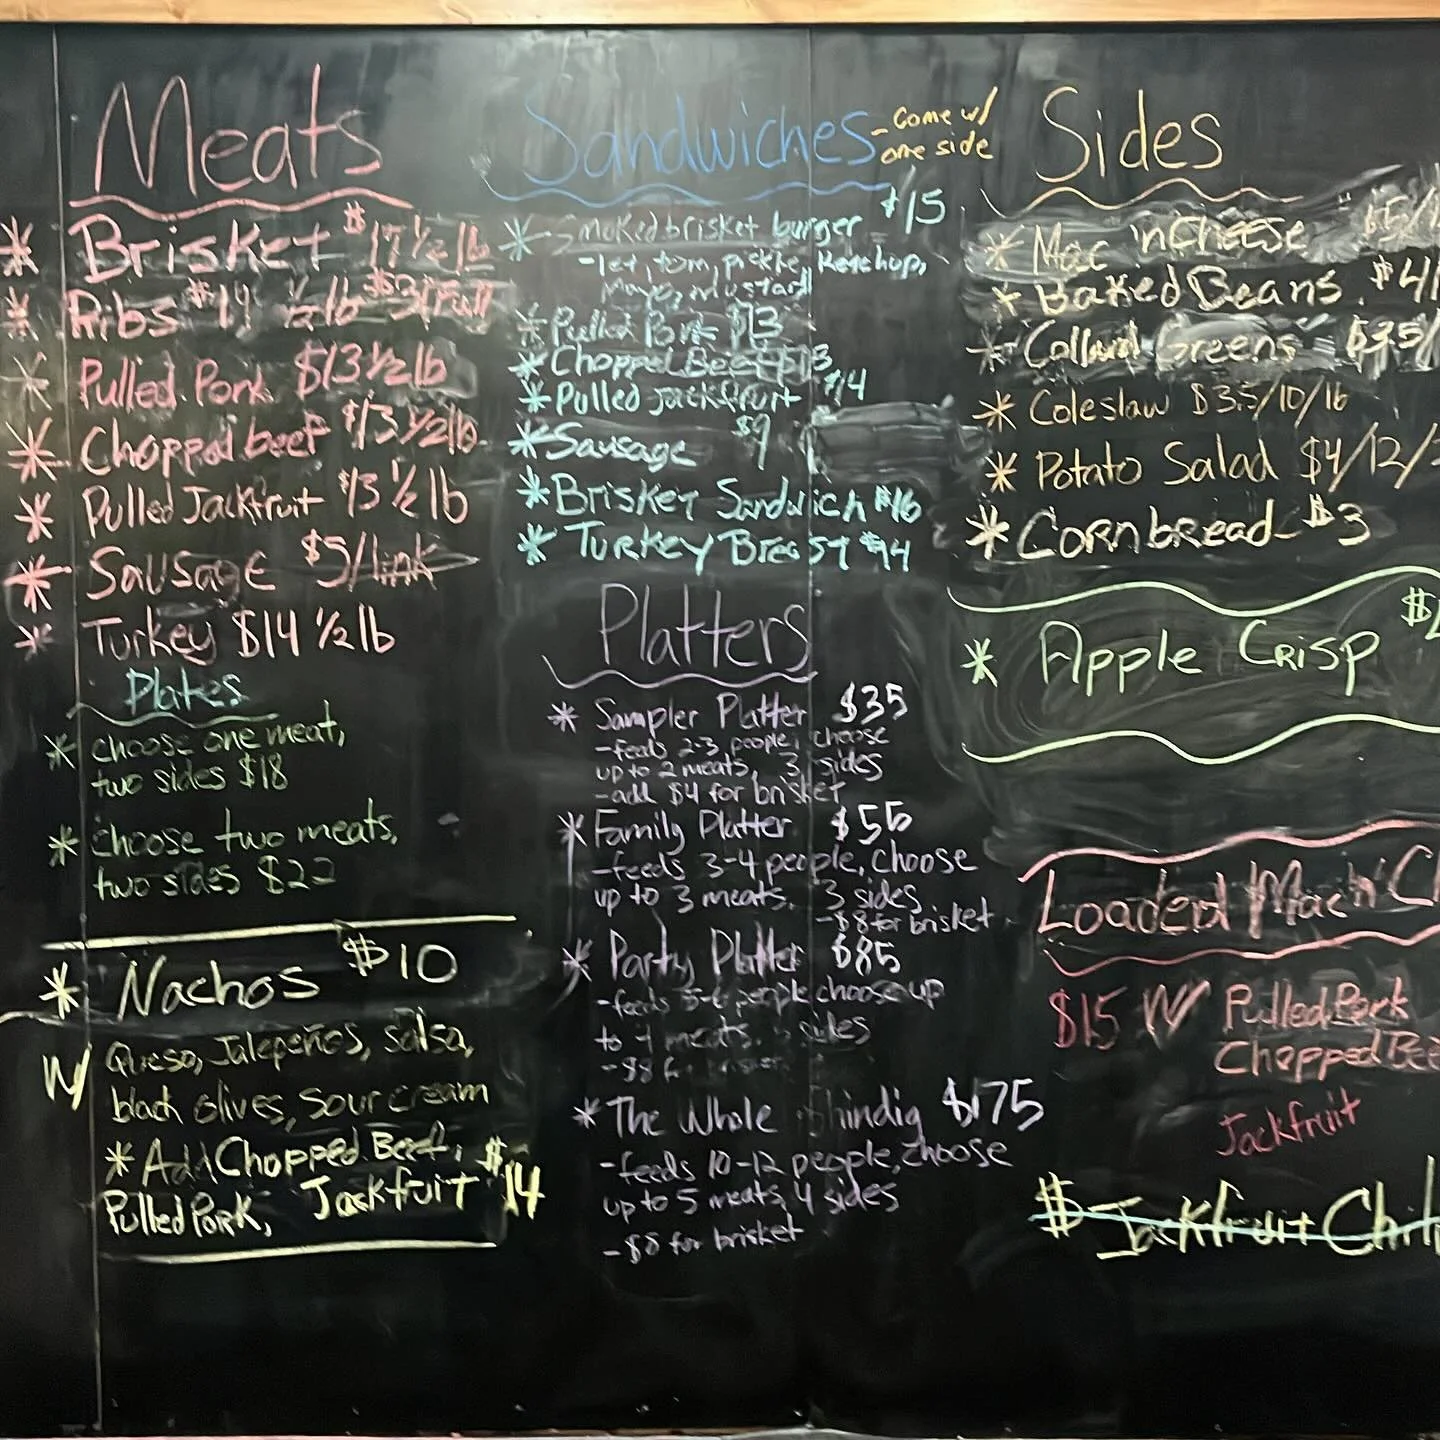 Meats
* Brisket $17 1/2 lb
* Ribs 1/2 lb
* Pulled Pork $13 1/2 lb
* Chopped beef $13 1/2 lb
* Pulled Jackfruit $13 1/2 lb
* Sausage $5/link
* Turkey $14 1/2 lb
Plates
* choose one meat,
two sides $18
* choose two meats,
two sides $22
* Nachos $10
w/ Queso, Jalepeños, salsa,
black olives, sour cream
* Add Chopped Beef, $14
Pulled Pork, Jackfruit
Sandwiches - come w/
one side
* Smoked brisket burger $15
- let, tom, pickle, Ketchup,
Mayo, mustard
* Pulled Pork $13
* Chopped Beef $13
* Pulled Jackfruit $14
* Sausage $9
* Brisket Sandwich $16
* Turkey Breast $14
Platters
* Sampler Platter $35
- feeds 2-3 people, choose
up to 2 meats, 3 sides
- add $4 for brisket
* Family Platter $55
- feeds 3-4 people, choose
up to 3 meats, 3 sides
- $8 for brisket
* Party Platter $85
- feeds 5-6 people choose up
to 4 meats, sides
- $8 for brisket
* The Whole Shindig $175
- feeds 10-12 people, choose
up to 5 meats, 4 sides
- $8 for brisket
Sides
* Mac 'n Cheese
* Baked Beans $4/
* Collard Greens $3.5/
* Coleslaw $3.5/10/16
* Potato Salad $4/12/
* Cornbread $3
* Apple Crisp
Loaded Mac n'
$15 w/ Pulled Pork
Chopped Bee
Jackfruit
$ Jackfruit Chili